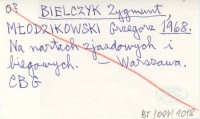 03
BIELCZYK Zygmunt,
MŁODZIKOWSKI Grzegorz 1968.
Na nartach zjazdowych i
biegowych. – Warszawa.
CBG